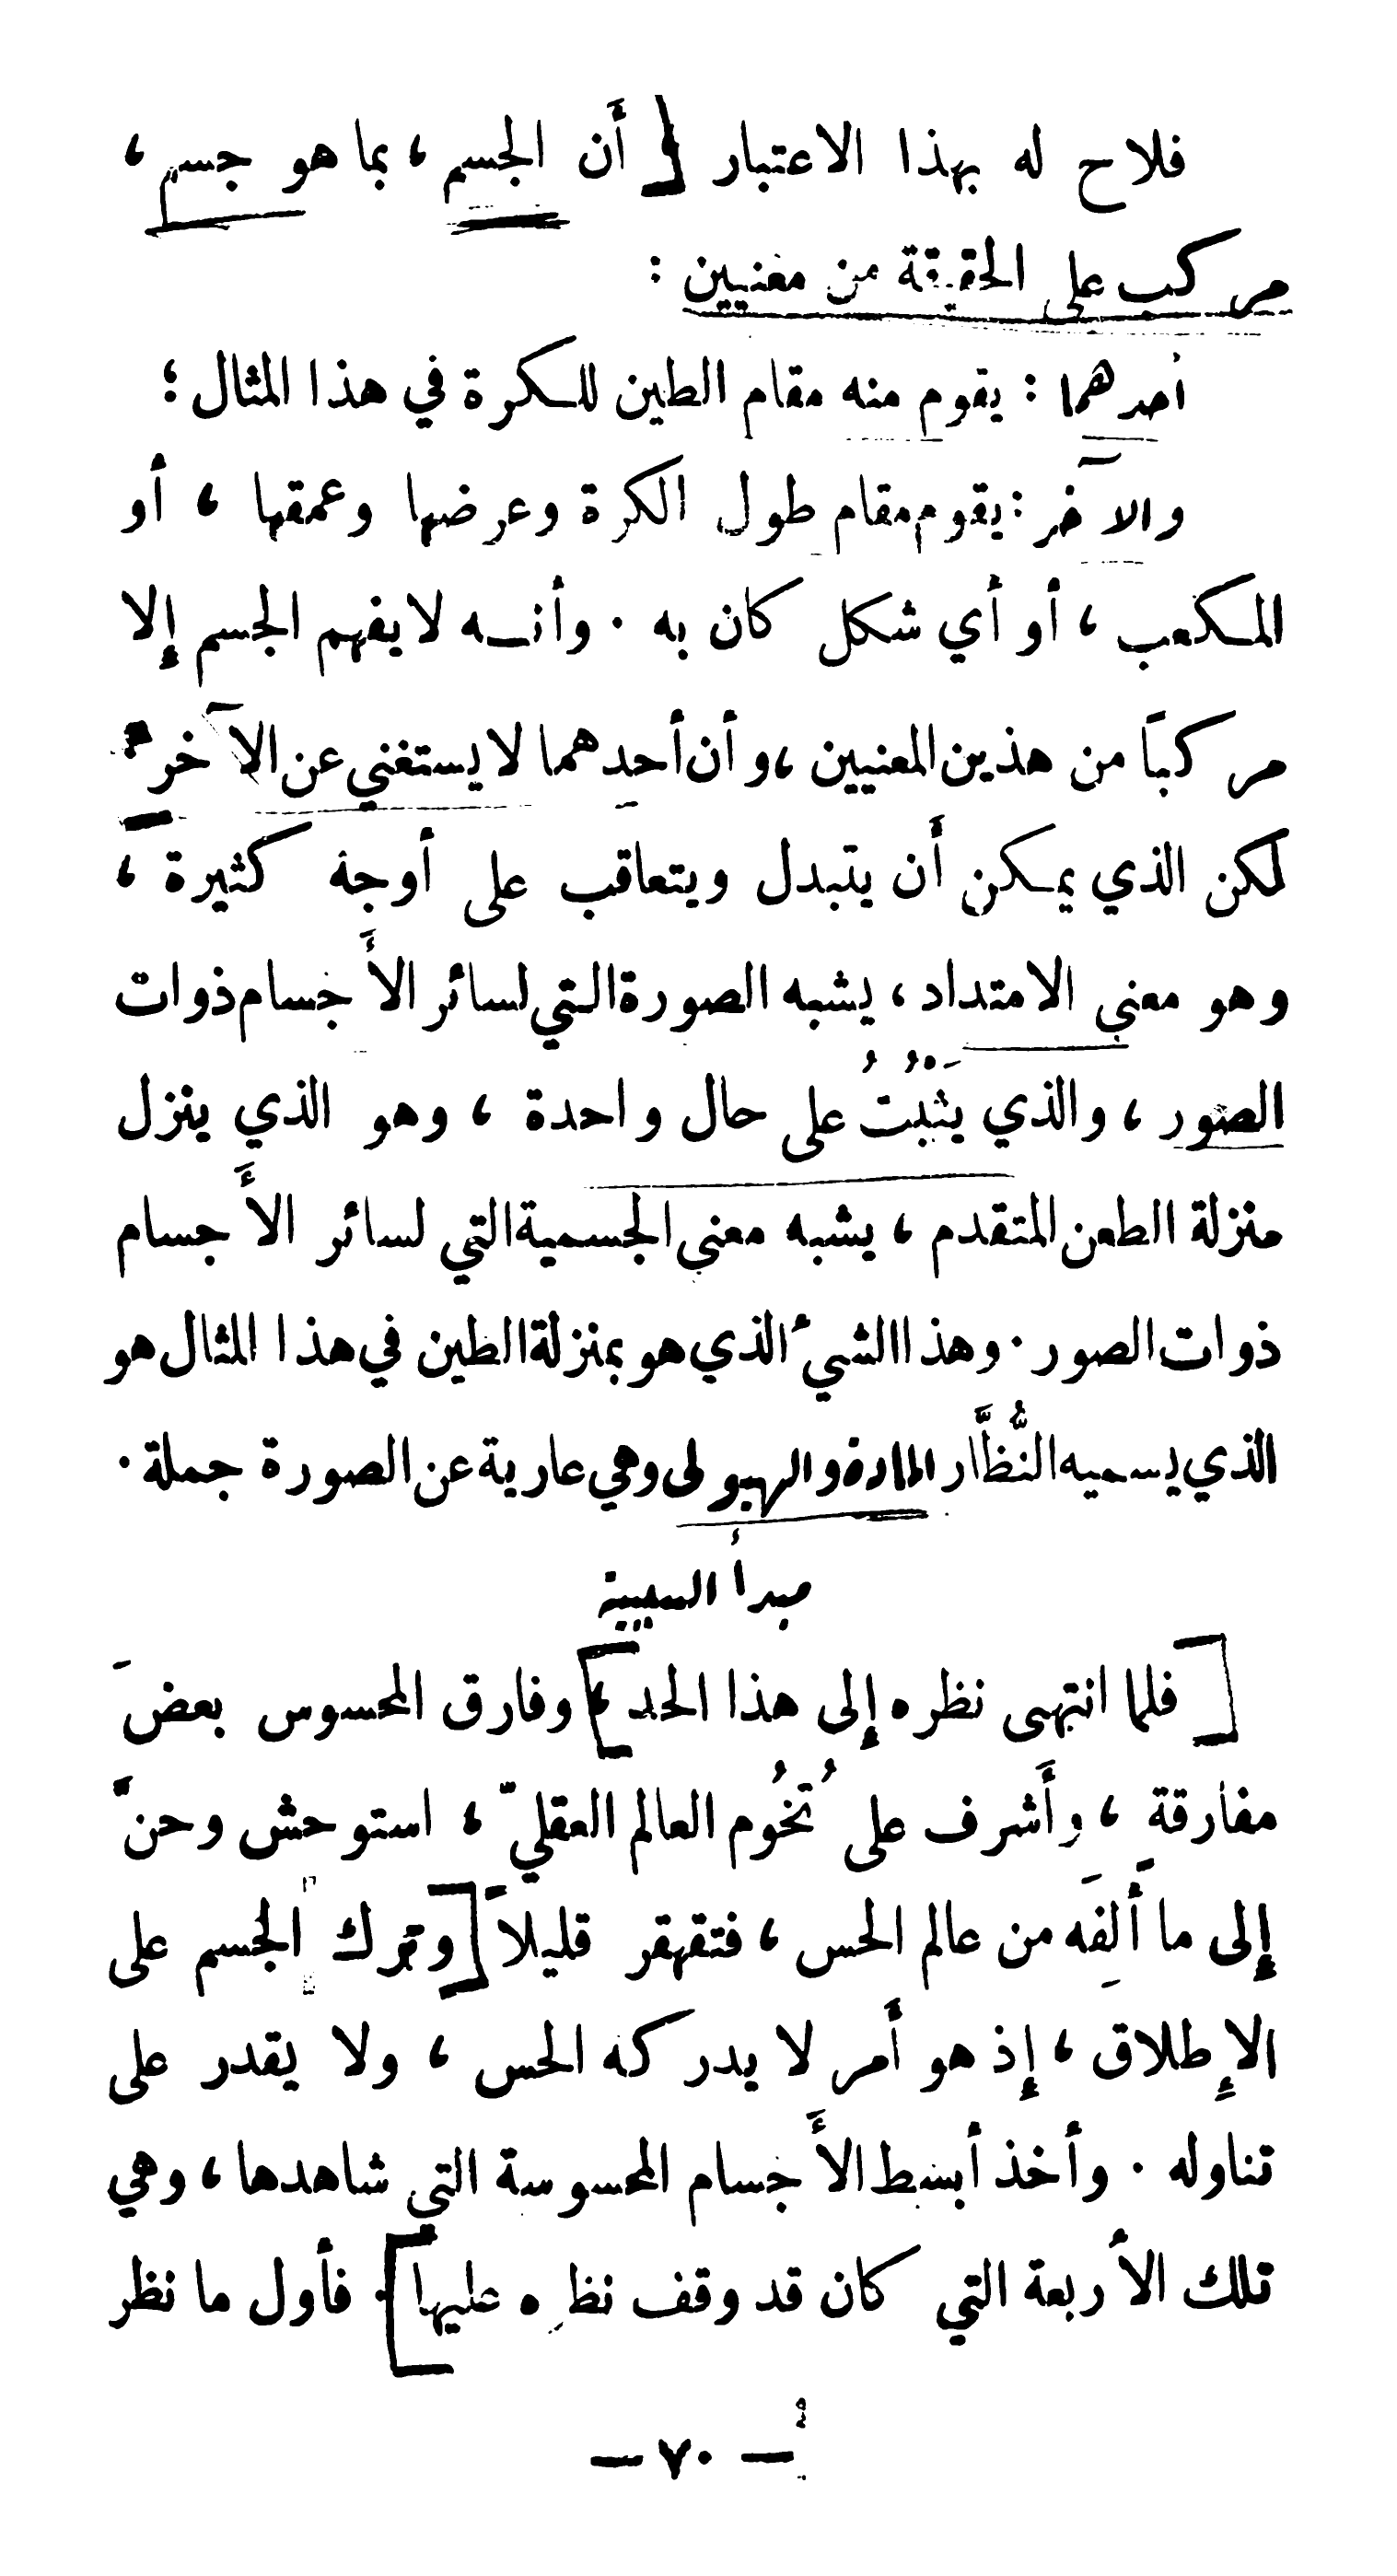 فلاح له بهذا الاعتبار [ أَن الجسم ، بما هو جسم ،
مركب على الحقيقة من معنيين :
أحدهما : يقوم منه مقام الطين للكرة في هذا المثال ؛
والآخر : يقوم مقام طول الكرة وعرضها وعمقها ، أو
المكعب ، أو أي شكل كان به . وأنه لا يفهم الجسم إلا
مركباً من هذين المعنيين ، وأن أحدهما لا يستغني عن الآخر .
لكن الذي يمكن أَن يتبدل ويتعاقب على أوجه كثيرة ،
وهو معنى الامتداد ، يشبه الصورة التي لسائر الأَجسام ذوات
الصور ، والذي يَثْبُتُ على حال واحدة ، وهو الذي ينزل
منزلة الطعن المتقدم ، يشبه معنى الجسمية التي لسائر الأَجسام
ذوات الصور . وهذا الشيء الذي هو بمنزلة الطين في هذا المثال هو
الذي يسميه النُّظَّار المادة والهيولى وهي عارية عن الصورة جملة .
مبدأ السببية
[ فلما انتهى نظره إلى هذا الحد ، ] وفارق المحسوس بعضَ
مفارقة ، وأَشرف على تُخُوم العالم العقليّ ، استوحش وحنَّ
إلى ما ألِفَه من عالم الحس ، فتقهقر قليلاً [ وترك الجسم على
الإِطلاق ، إذ هو أَمر لا يدركه الحس ، ولا يقدر على
تناوله . وأخذ أبسط الأَجسام المحسوسة التي شاهدها ، وهي
تلك الأربعة التي كان قد وقف نظره عليها ] . فأول ما نظر
— ٧٠ —